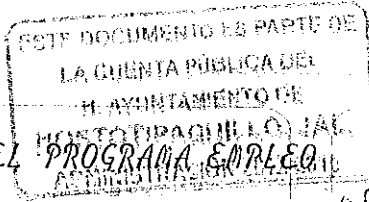 ESTE DOCUMENTO ES PARTE DE
LA CUENTA PÚBLICA DEL
H. AYUNTAMIENTO DE
HOSTOTIPAQUILLO, JAL.
EL PROGRAMA EMPLEO